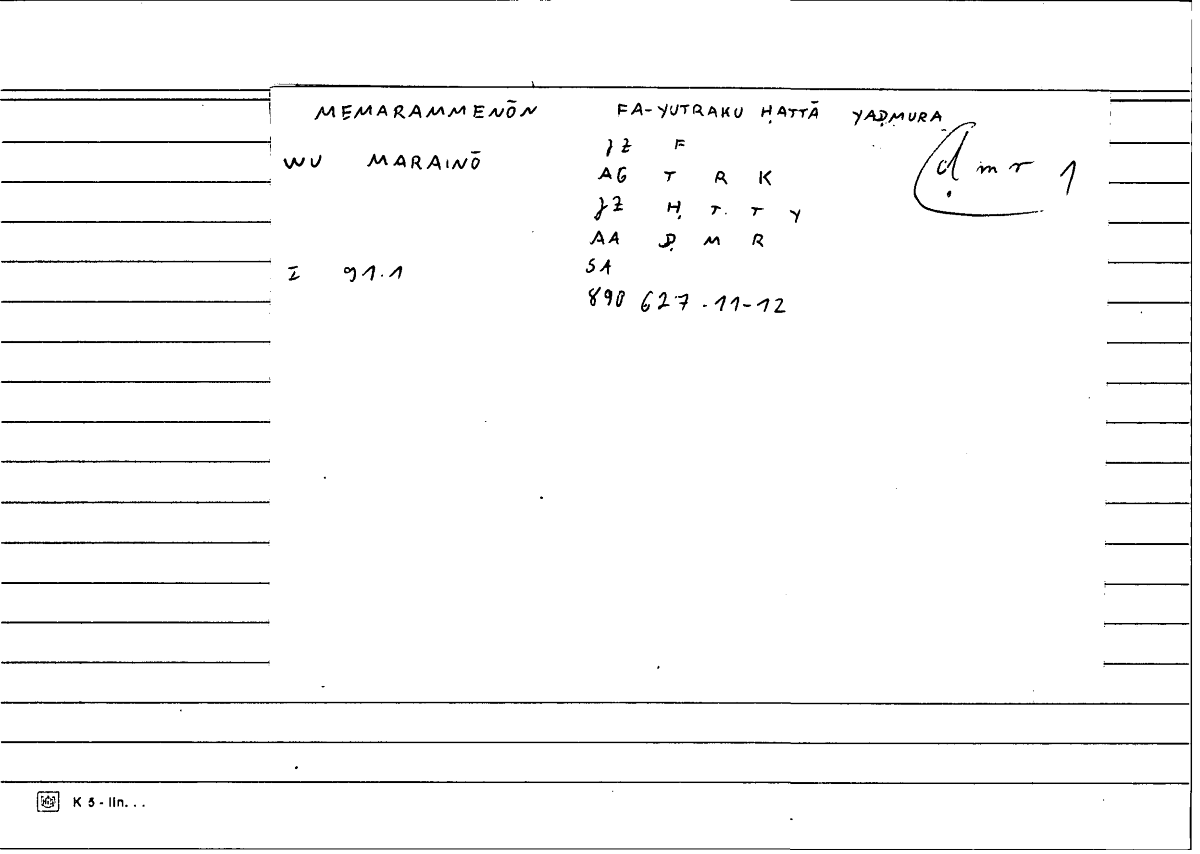 MEMARAMMENŌN FA-YUTRAKU ḤATTĀ YAḌMURA
ḍmr 1
WU MARAINŌ
ȷ Ƶ F
AG T R K
ȷ Ƶ Ḥ T T Y
AA Ḍ M R
I 91.1 SA
890 627.11-12
K 5 - lin. . .